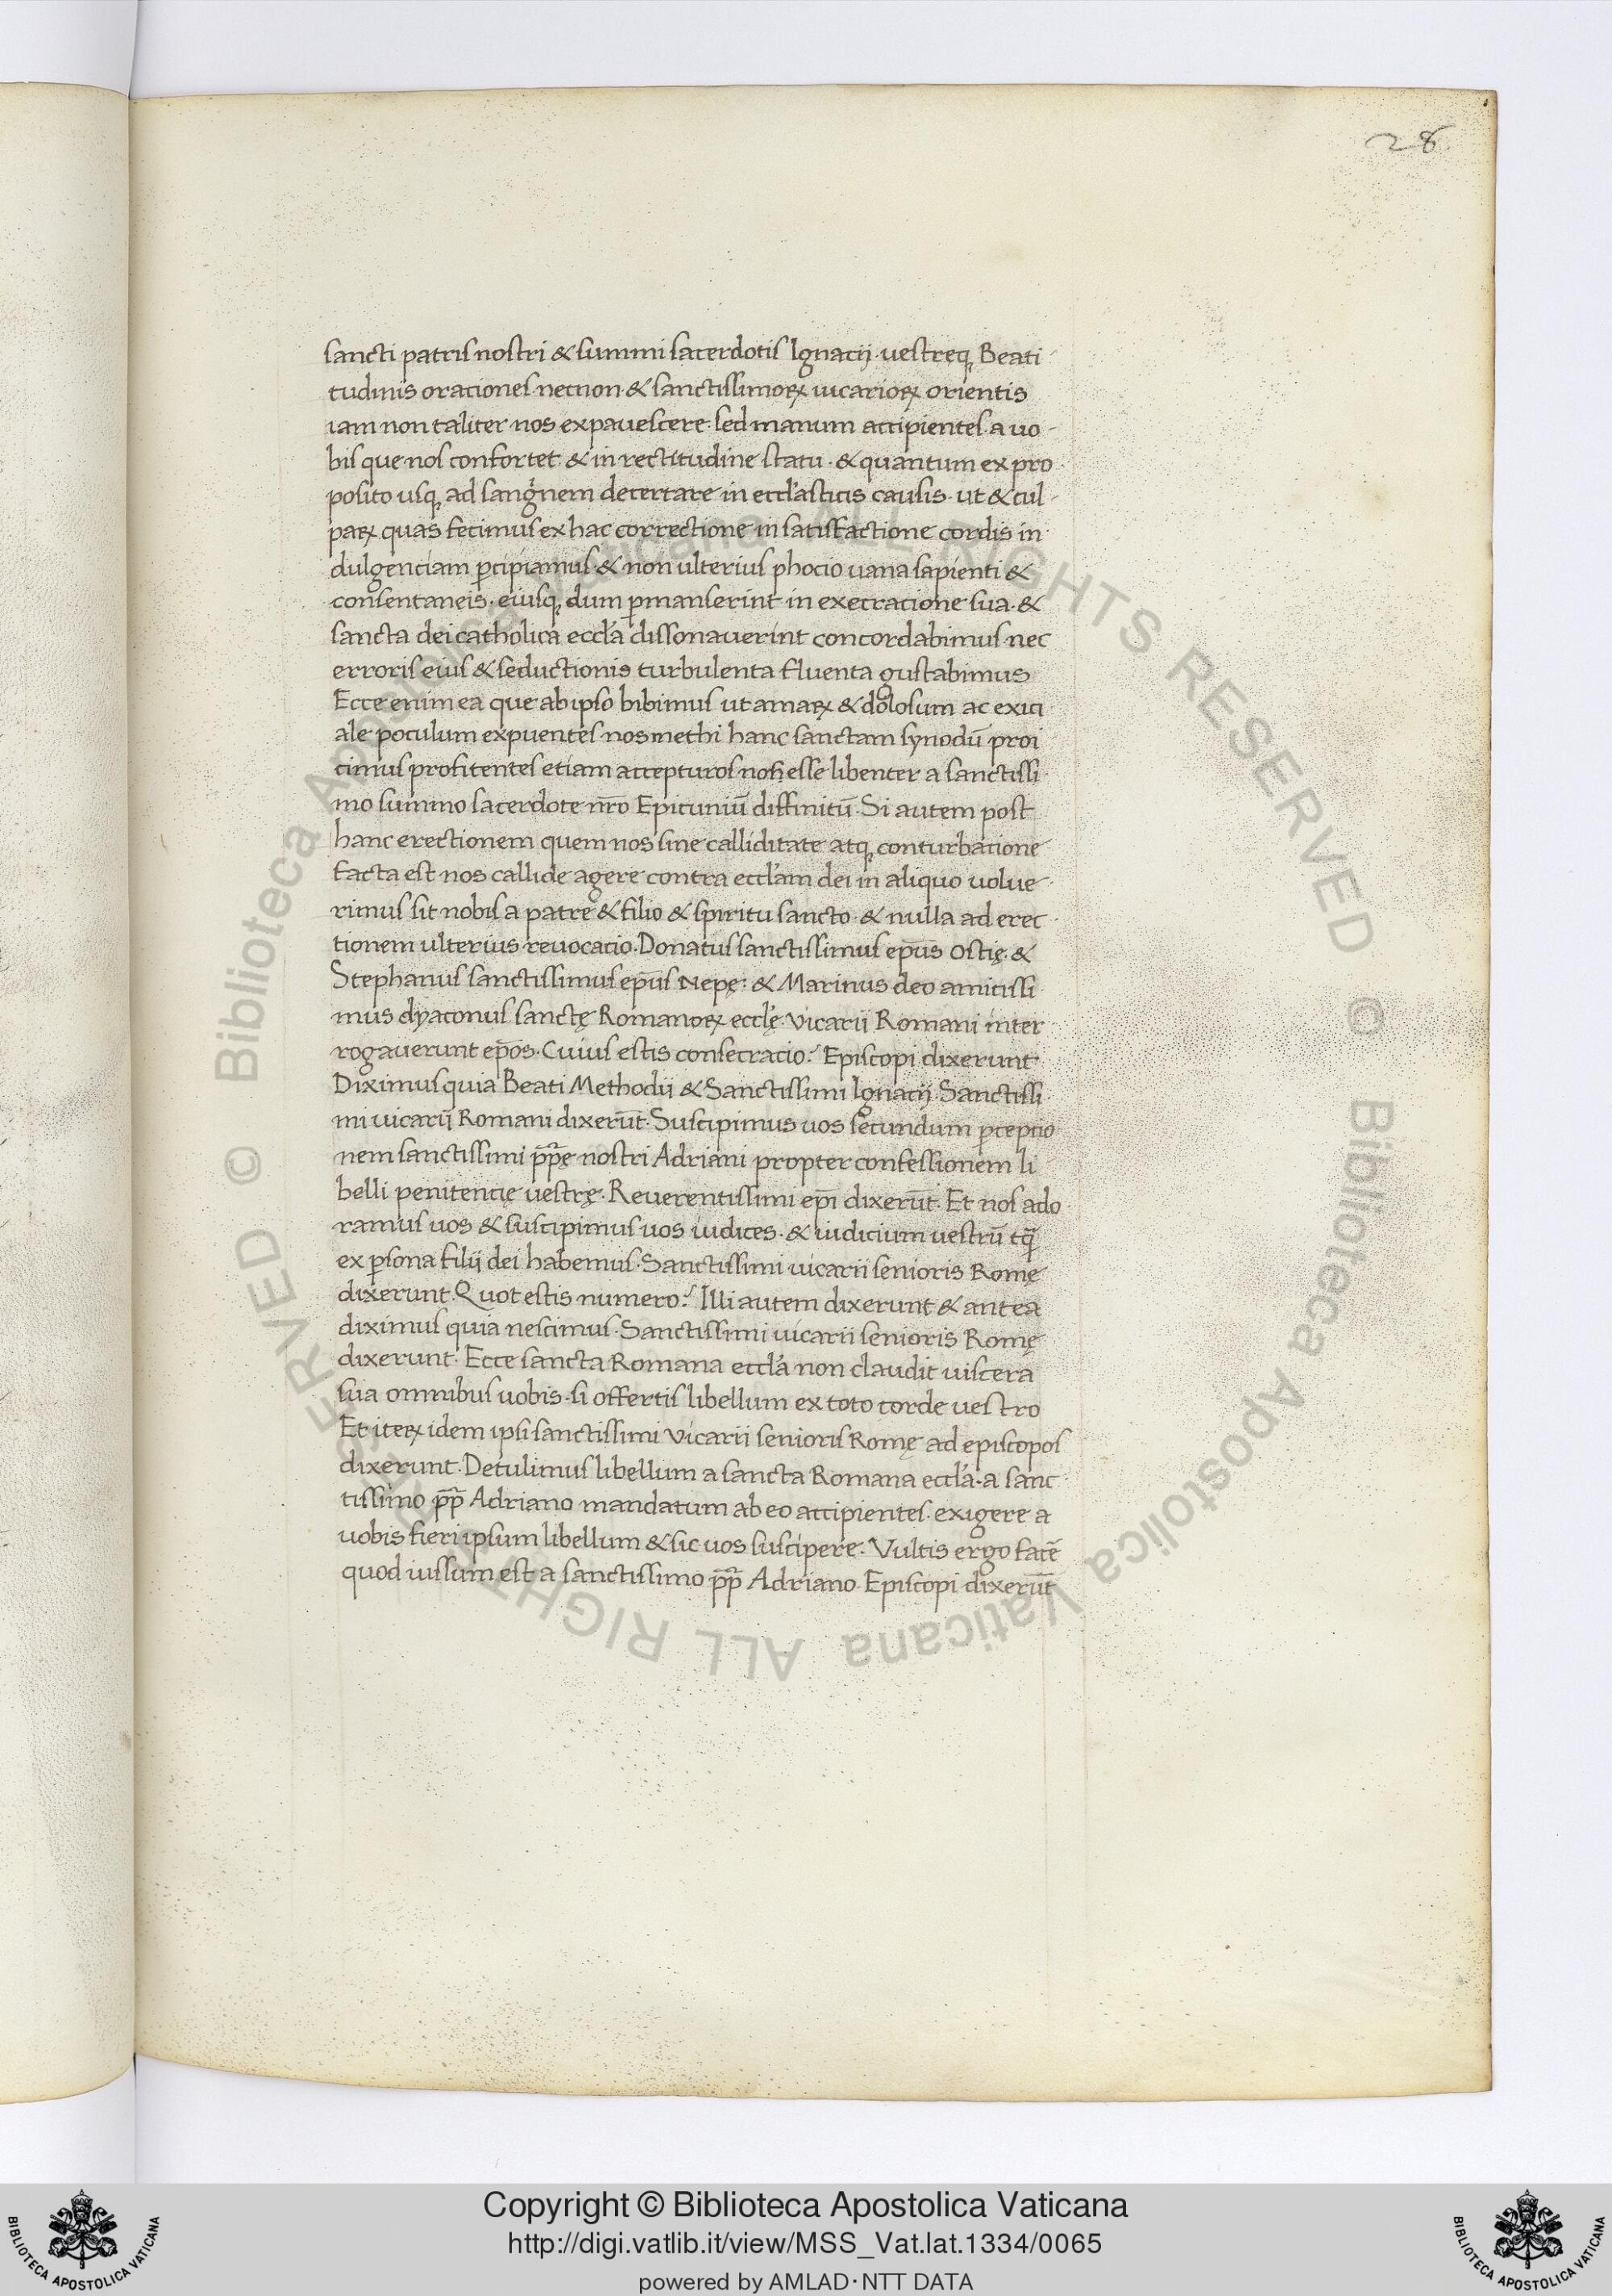 28
sancti patris nostri & summi sacerdotis Ignacij. vestreq; Beati
tudinis oraciones necnon & sanctissimoꝝ vicarioꝝ orientis
iam non taliter nos expavescere. sed manum accipientes a vo
bis que nos confortet & in rectitudine statu. & quantum ex pro
posito usq; ad sangnem decertare in eccl'asticis causis. ut & cul
paꝝ quas fecimus ex hac correctione in satisfactione cordis in
dulgenciam ꝑcipiamus & non ulterius phocio vana sapienti &
consentaneis. eiusq; dum ꝑmanserint in execracione sua. &
sancta dei catholica eccl'a dissonaverint concordabimus nec
erroris eius & seductionis turbulenta fluenta gustabimus
Ecce enim ea que ab ipso bibimus ut amaꝝ & dolosum ac exici
ale poculum expuentes nosmethi hanc sanctam synodū proi
cimus profitentes etiam accepturos nos esse libenter a sanctissi
mo summo sacerdote nr̄o Epicuniū diffinitū. Si autem post
hanc erectionem quem nos sine calliditate atq; conturbacione
facta est nos callide agere contra eccl'am dei in aliquo volue
rimus sit nobis a patre & filio & spiritu sancto. & nulla ad erec
tionem ulterius revocacio. Donatus sanctissimus ep̄us Ostię. &
Stephanus sanctissimus ep̄us Nepę: & Marinus deo amicissi
mus dyaconus sanctę Romanoꝝ ecclę. Vicarii Romani inter
rogaverunt ep̄os. Cuius estis consecracio? Episcopi dixerunt
Diximus quia Beati Methodii & Sanctissimi Ignacij. Sanctissi
mi vicarij Romani dixerūt. Suscipimus vos secundum p̄cepcio
nem sanctissimi p̄p̄ę nostri Adriani propter confessionem li
belli penitencię vestrę. Reverentissimi ep̄i dixerūt. Et nos ado
ramus vos & suscipimus vos iudices. & iudicium vestrū tq̄
ex ꝑsona filij dei habemus. Sanctissimi vicarii senioris Romę
dixerunt. Quot estis numero? Illi autem dixerunt & antea
diximus quia nescimus. Sanctissimi vicarii senioris Romę
dixerunt. Ecce sancta Romana eccl'a non claudit viscera
sua omnibus vobis. si offertis libellum ex toto corde vestro
Et iteꝝ idem ipsi sanctissimi Vicarii senioris Romę ad episcopos
dixerunt. Detulimus libellum a sancta Romana eccl'a. a sanc
tissimo p̄p̄ Adriano mandatum ab eo accipientes. exigere a
vobis fieri ipsum libellum & sic vos suscipere. Vultis ergo facē
quod iussum est a sanctissimo p̄p̄ Adriano. Episcopi dixerūt
© Biblioteca Apostolica Vaticana ALL RIGHTS RESERVED © Biblioteca Apostolica Vaticana ALL RIGHTS RESERVED
Copyright © Biblioteca Apostolica Vaticana
http://digi.vatlib.it/view/MSS_Vat.lat.1334/0065
powered by AMLAD·NTT DATA
BIBLIOTECA APOSTOLICA VATICANA
BIBLIOTECA APOSTOLICA VATICANA